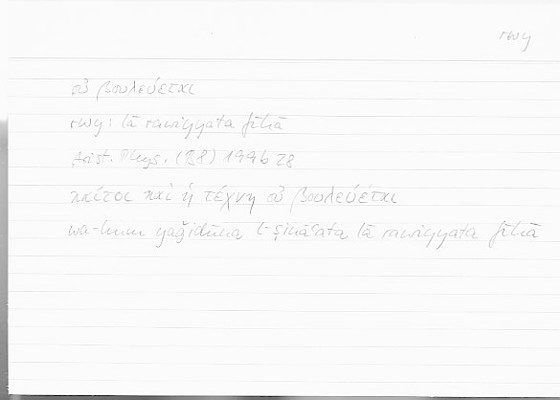 rwy
οὐ βουλεύεται
rwy: lā rawiyyata fīhā
Arist. Phys. (B8) 199b 28
καίτοι καὶ ἡ τέχνη οὐ βουλεύεται
wa-hum yaǧidūna l-ṣināʿata lā rawiyyata fīhā